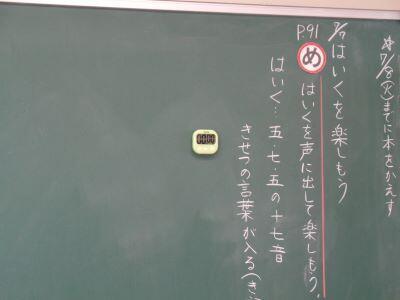 ※7/8(火)までに本をかえす
7/7 はいくを楽しもう
P.91
め はいくを声に出して楽しもう
はいく…五・七・五の十七音
きせつの言葉が入る(き
00:00